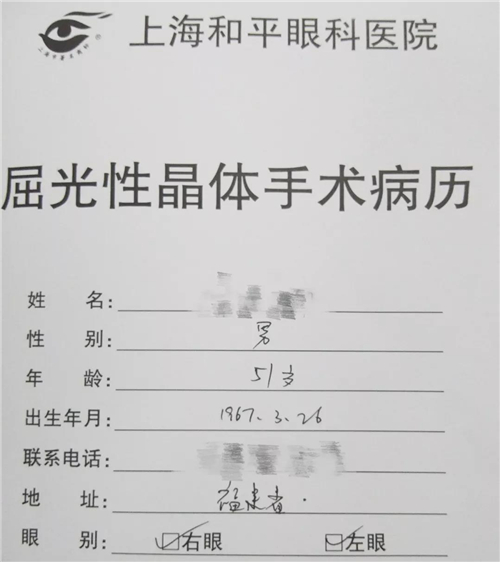 上海和平眼科医院
屈光性晶体手术病历
姓 名:
性 别: 男
年 龄: 51岁
出生年月: 1967.3.26
联系电话:
地 址: 福建省.
眼 别: ☑右眼 ☑左眼